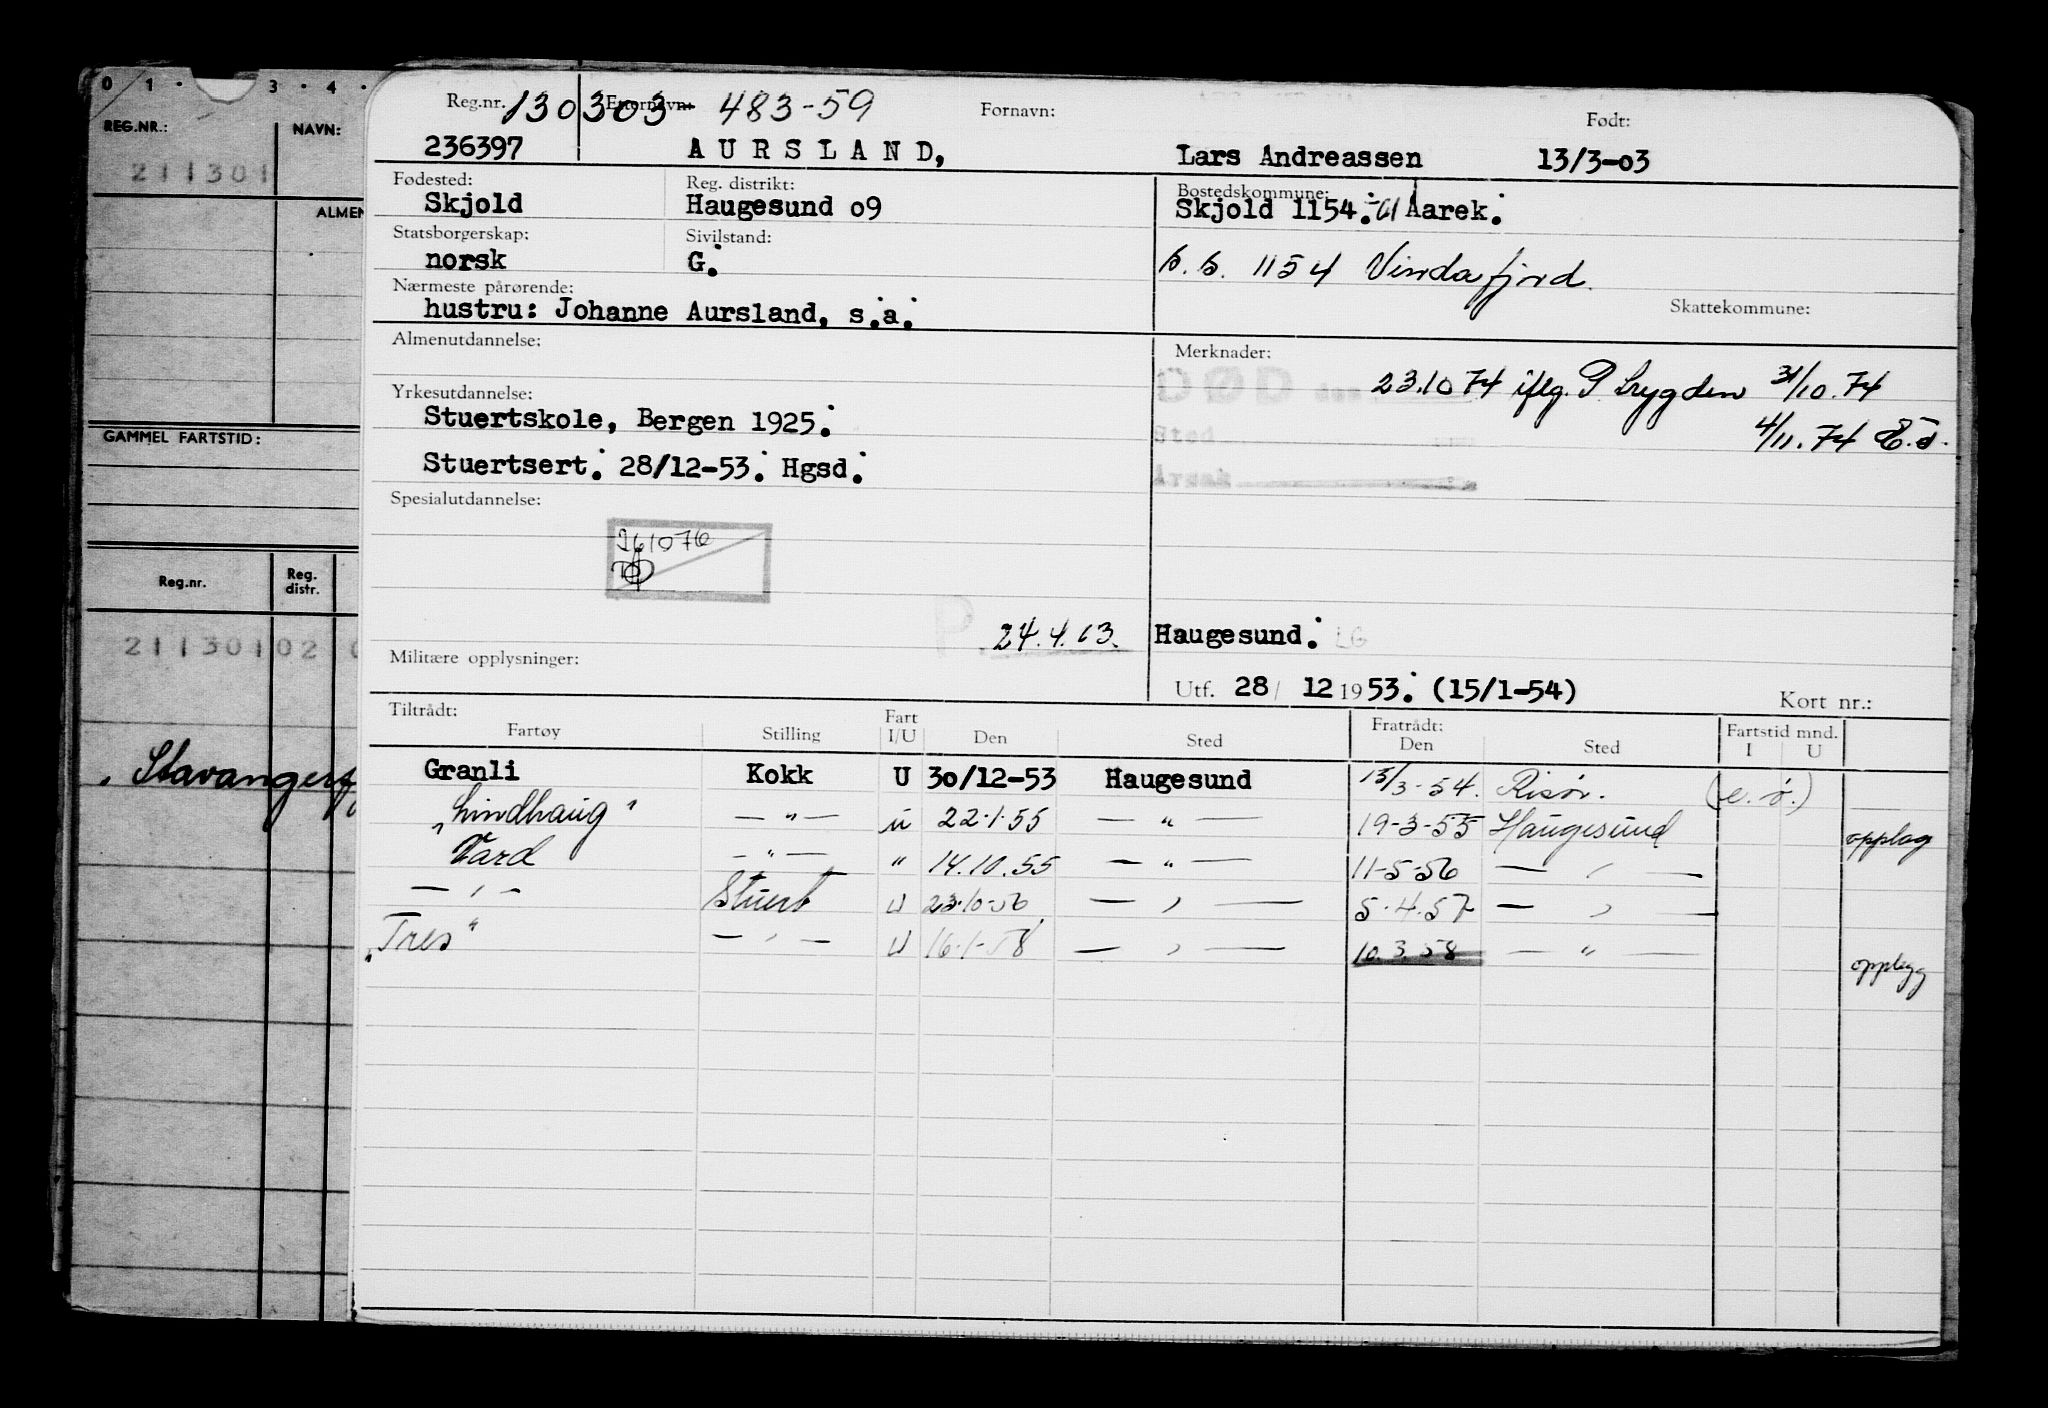 0 1 · 3 · 4 ·
REG.NR.: NAVN:
211301
ALMEN
GAMMEL FARTSTID:
Reg.nr. Reg. distr.
21130102
Stavangerf
Reg.nr. 130303 Etternavn: 483-59 Fornavn: Født:
236397 AURSLAND, Lars Andreassen 13/3-03
Fødested: Reg. distrikt: Bostedskommune:
Skjold Haugesund o9 Skjold 1154. Aarek.
Statsborgerskap: Sivilstand:
norsk G. b.b. 1154 Vindafjord.
Nærmeste pårørende: Skattekommune:
hustru: Johanne Aursland, s.a.
Almenutdannelse: Merknader:
DØD den 23.10 74 iflg. P. trygden 31/10.74
Yrkesutdannelse:
Stuertskole, Bergen 1925. Sted 4/11.74
Stuertsert. 28/12-53. Hgsd. Årsak
Spesialutdannelse:
261076
P. 24.4.63. Haugesund. LG
Militære opplysninger:
Utf. 28/ 12 1953. (15/1-54) Kort nr.:
Tiltrådt: Fratrådt: Fartstid mnd.
Fartøy Stilling Fart I/U Den Sted Den Sted I U
Granli Kokk U 30/12-53 Haugesund 15/3-54. Risør. (e.ø.)
"Lindhaug" — " — u 22.1.55 — " — 19-3-55 Haugesund opplag
Vard — " — " 14.10.55 — " — 11-5-56 — " —
— " — Stuert U 23.10-56 — " — 5.4.57 — " —
"Tres" — " — U 16-1-58 — " — 10.3.58 — " — opplegg